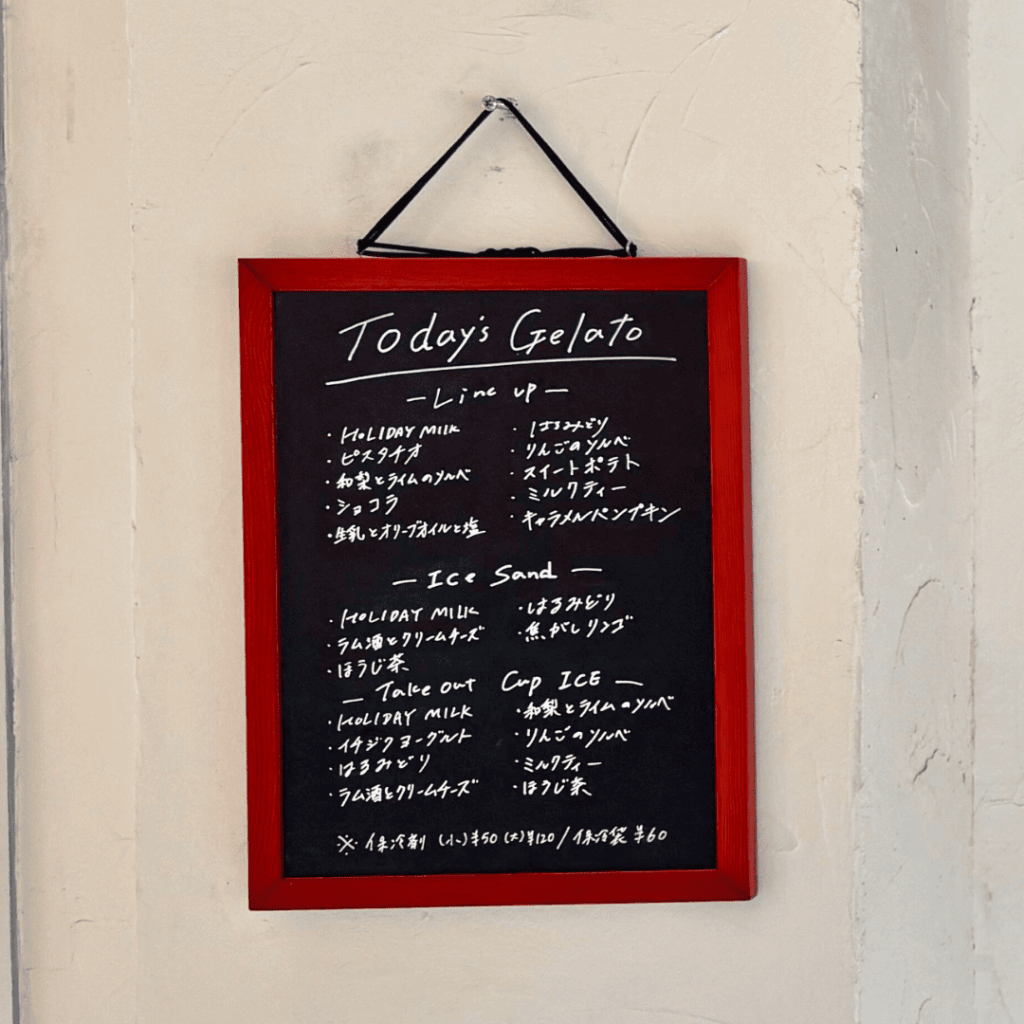 Today's Gelato
— Line up —
・HOLIDAY MILK
・ピスタチオ
・和梨とライムのソルベ
・ショコラ
・生乳とオリーブオイルと塩
・はるみどり
・りんごのソルベ
・スイートポテト
・ミルクティー
・キャラメルパンプキン
— Ice Sand —
・HOLIDAY MILK
・ラム酒とクリームチーズ
・ほうじ茶
・はるみどり
・焦がしリンゴ
— Take out Cup ICE —
・HOLIDAY MILK
・イチジクヨーグルト
・はるみどり
・ラム酒とクリームチーズ
・和梨とライムのソルベ
・りんごのソルベ
・ミルクティー
・ほうじ茶
※ 保冷剤 (小)¥50 (大)¥120 / 保冷袋 ¥60